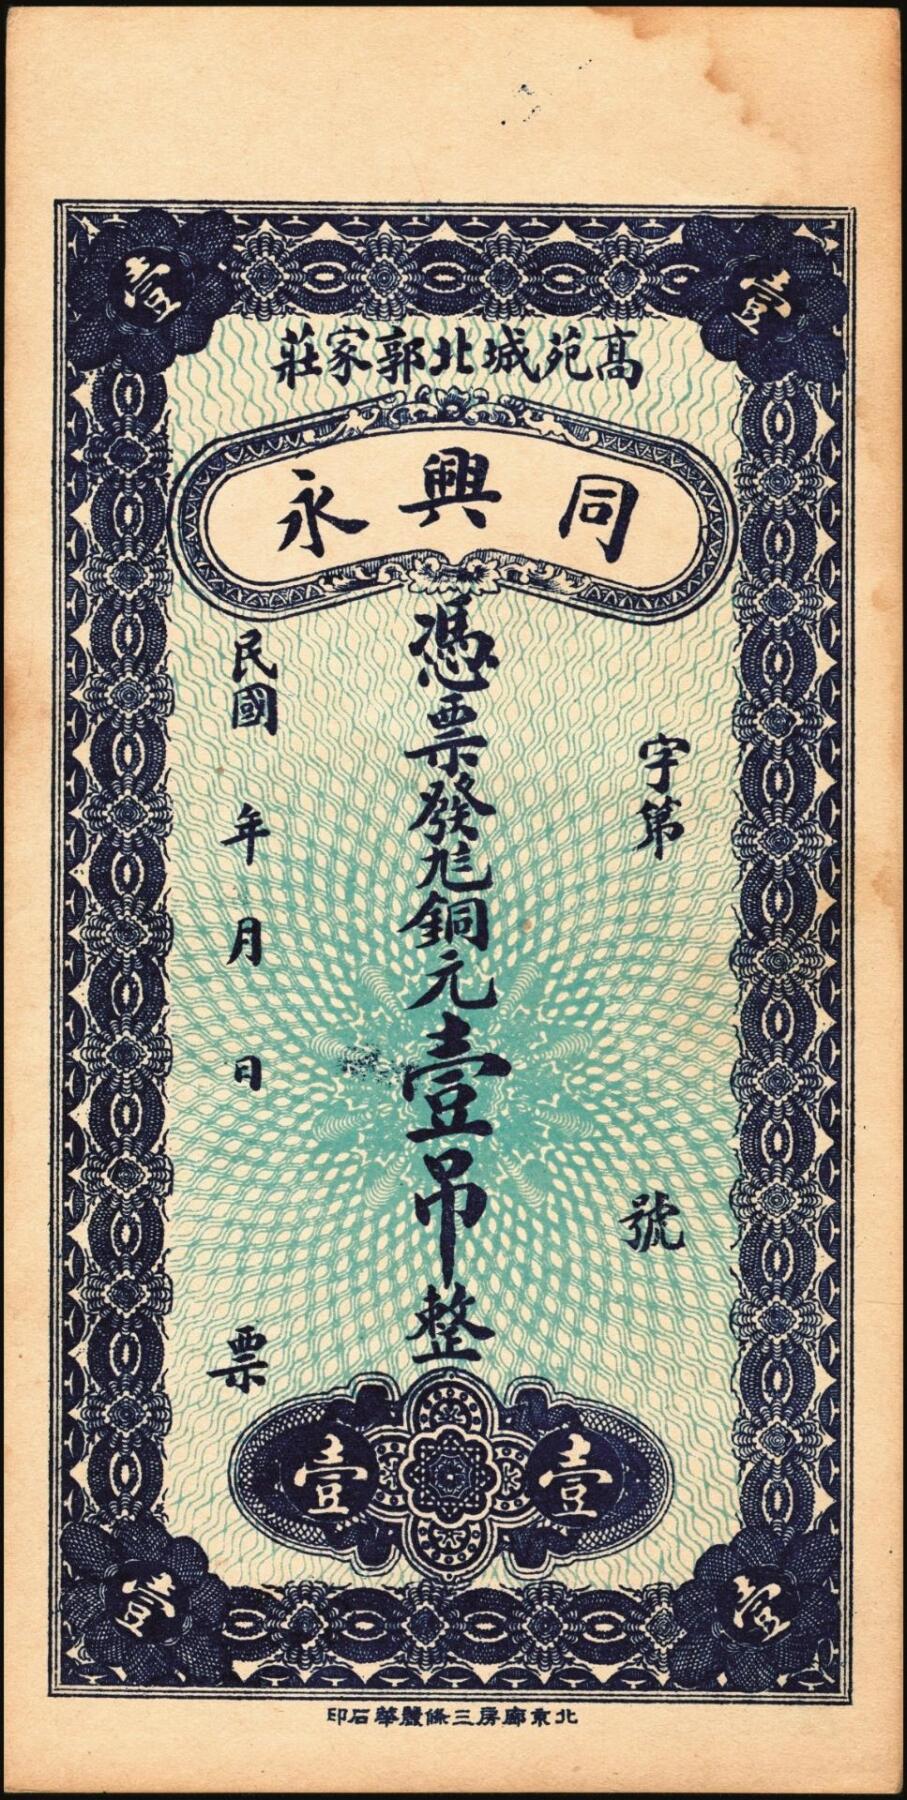 壹
壹
高苑城北郭家莊
同興永
字第 號
憑票發 銅元壹吊整
民國 年 月 日 票
壹
壹
壹
壹
北京廊房三條麗華石印